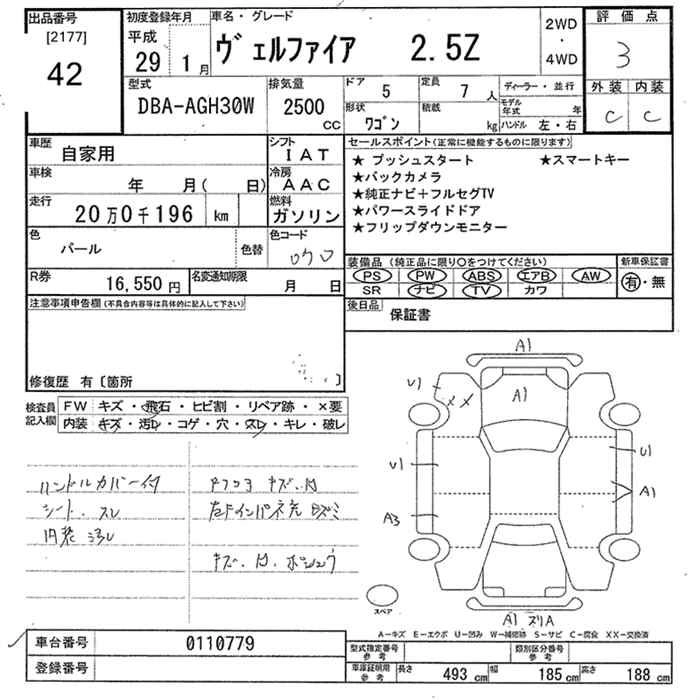 出品番号
[2177]
42
初度登録年月
平成
29年 1月
車名・グレード
ヴェルファイア 2.5Z
2WD
・
4WD
評価点
3
外装 内装
C C
型式
DBA-AGH30W
排気量
2500
CC
ドア 5
定員 7人
形状 ワゴン
積載 kg
ディーラー・並行
モデル年式 年
ハンドル 左・右
車歴 自家用
シフト IAT
車検 年 月( 日)
冷房 AAC
走行 20万0千196 km
燃料 ガソリン
色 パール
色替
色コード
R券 16,550円
名変通知期限 月 日
セールスポイント(正常に機能するものに限ります)
★ プッシュスタート ★スマートキー
★バックカメラ
★純正ナビ+フルセグTV
★パワースライドドア
★フリップダウンモニター
装備品 (純正品に限り○をつけてください)
PS PW ABS エアB AW
SR ナビ TV カワ
新車保証書
有・無
後日品 保証書
注意事項申告欄(不具合内容等は具体的に記入して下さい)
修復歴 有〔箇所 〕
検査員記入欄
FW キズ・飛石・ヒビ割・リペア跡・×要
内装 キズ・汚レ・コゲ・穴・スレ・キレ・破レ
ハンドルカバー付
シート スレ
内装 汚レ
キズ.凹
キズ.凹.
A1
U1
XX
A1
U1
U1
A1
A3
A1
スペア
A-キズ E-エクボ U-凹み W-補修跡 S-サビ C-腐食 XX-交換済
車台番号 0110779
登録番号
型式指定番号参考
類別区分番号参考
車庫証明用参考 長さ 493cm 幅 185cm 高さ 188cm